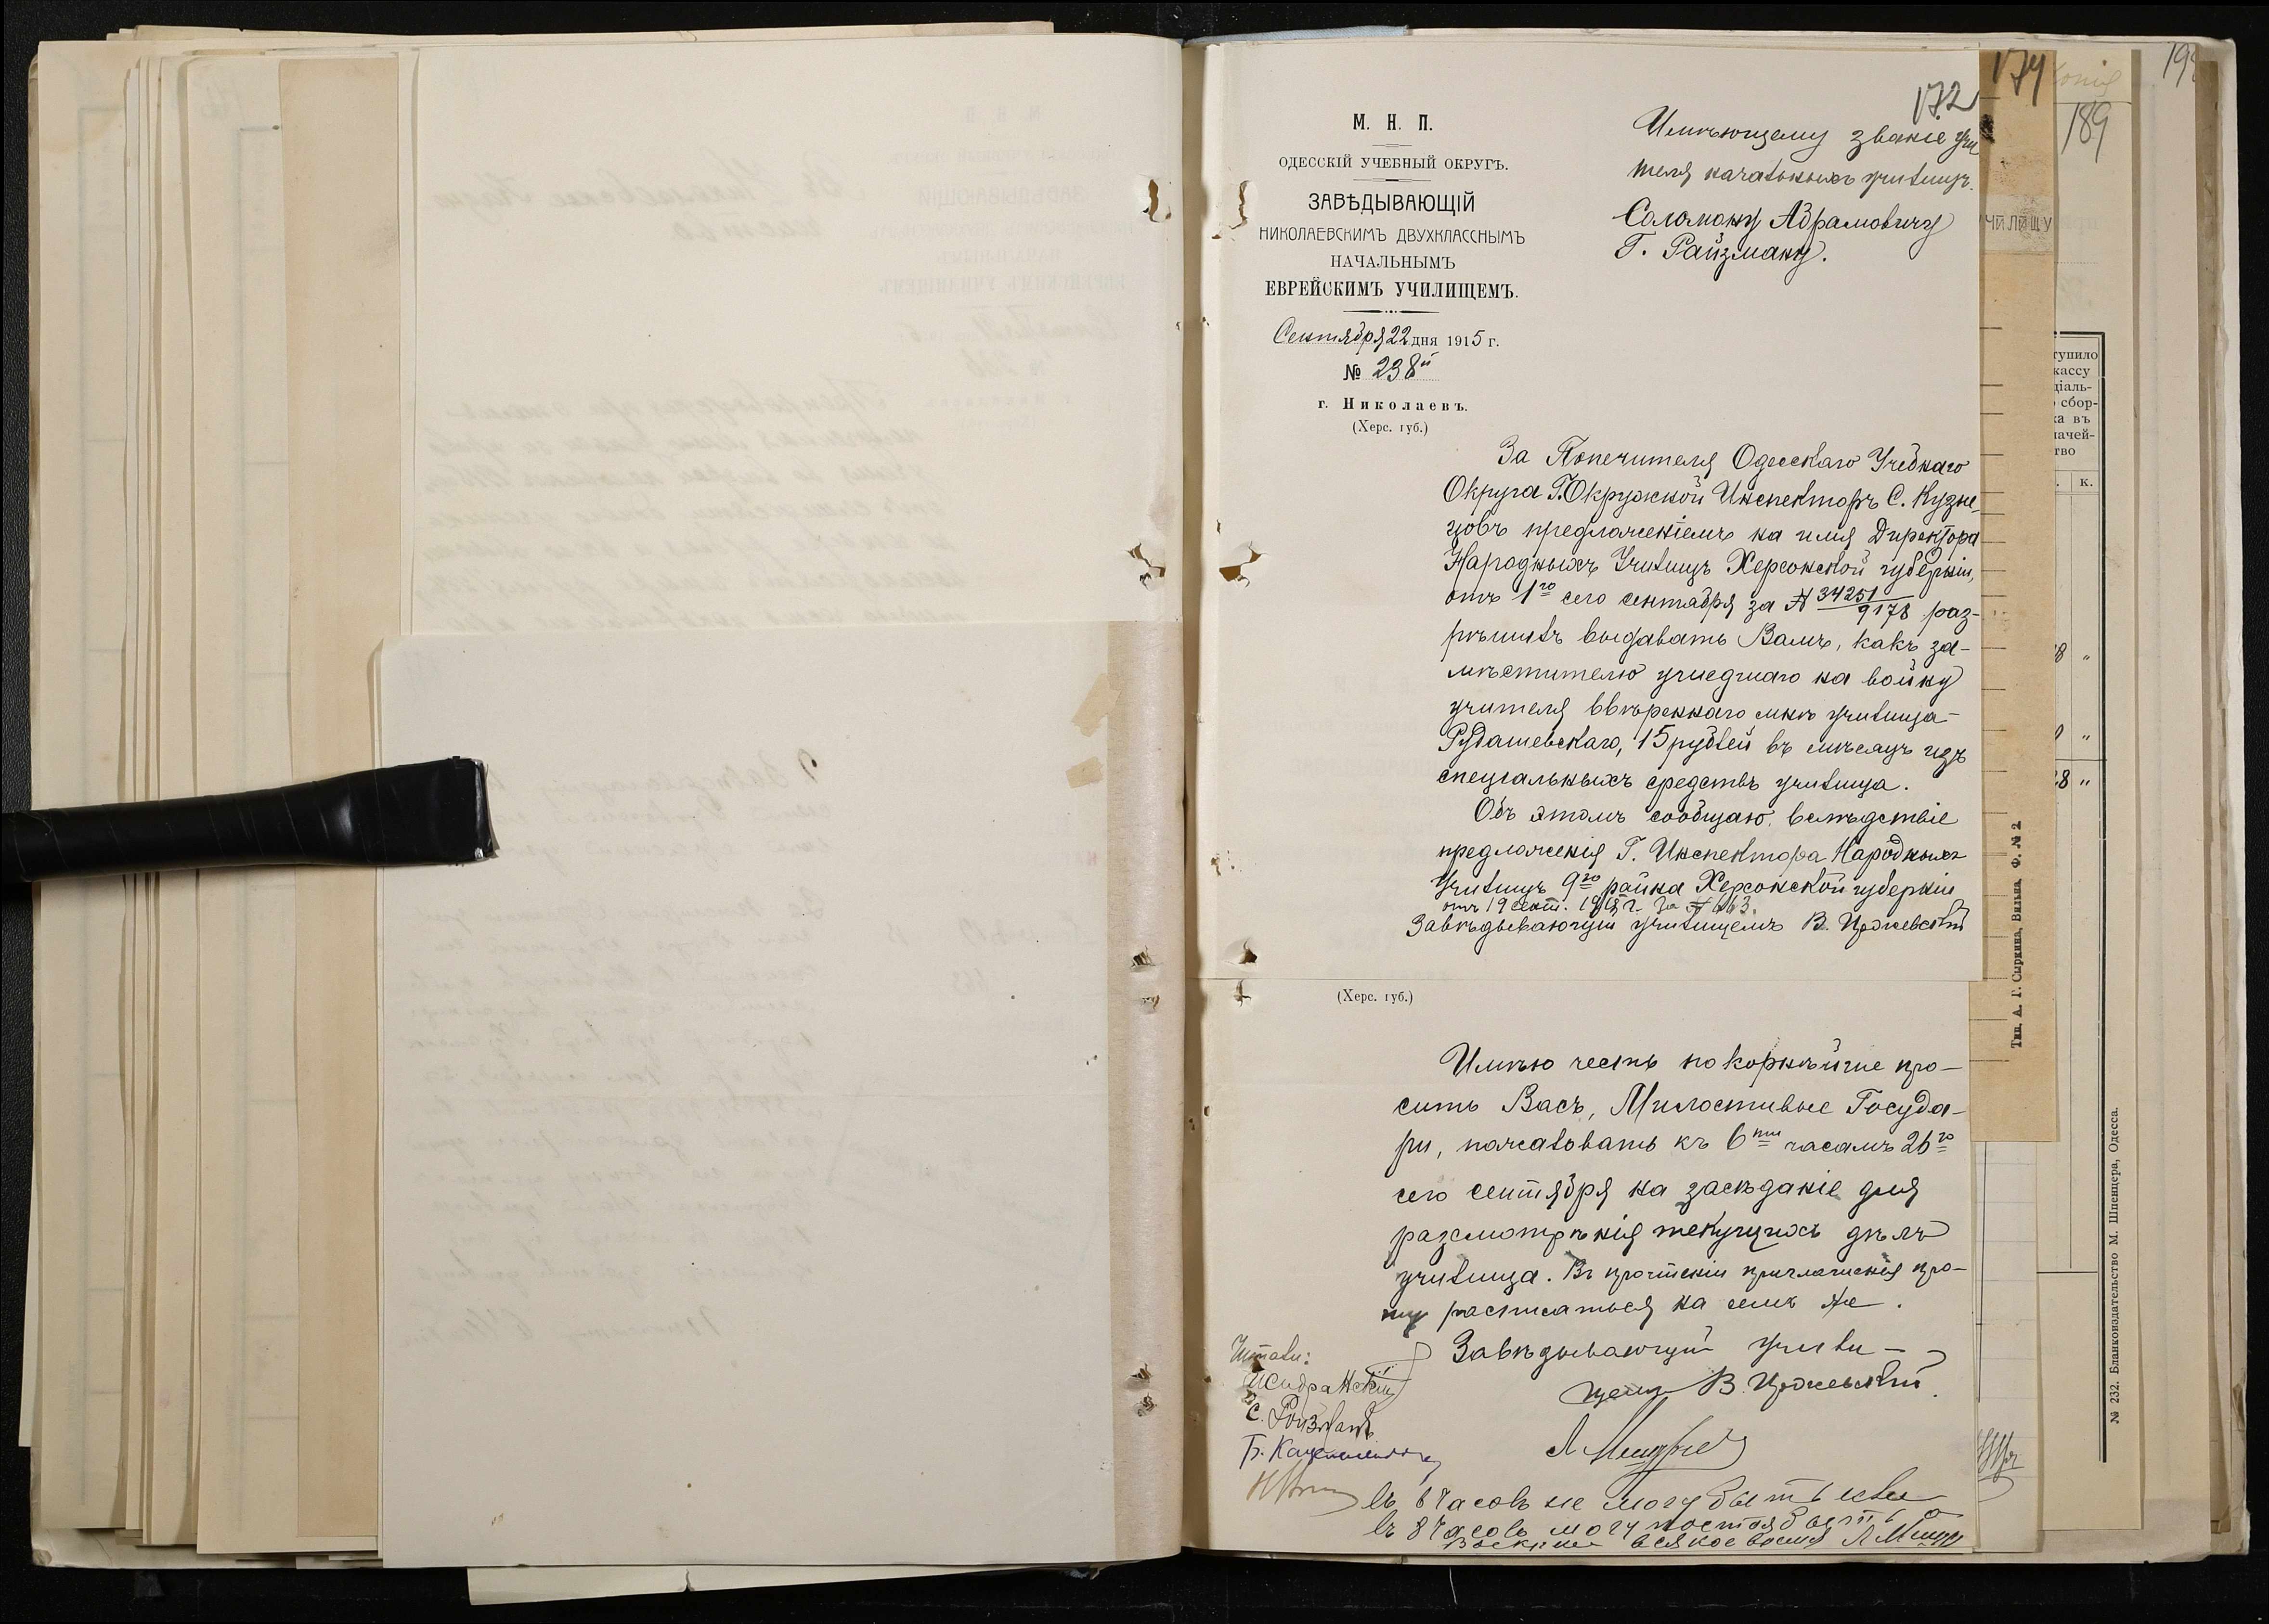 172
174
189
М. Н. П.
ОДЕССКІЙ УЧЕБНЫЙ ОКРУГЪ.
ЗАВѢДЫВАЮЩІЙ
НИКОЛАЕВСКИМЪ ДВУХКЛАССНЫМЪ
НАЧАЛЬНЫМЪ
ЕВРЕЙСКИМЪ УЧИЛИЩЕМЪ.
Сентября 22 дня 1915 г.
№ 238
г. Николаевъ.
(Херс. губ.)
Имѣющему званіе учи
теля начальныхъ училищъ
Соломону Абрамовичу
Г. Райзману.
За Попечителя Одесскаго Учебнаго
Округа Г. Окружной Инспекторъ С. Кузне-
цовъ предложеніемъ на имя Директора
Народныхъ Училищъ Херсонской губерніи,
отъ 1го сего сентября за № 34251/9178 раз-
рѣшилъ выдавать Вамъ, какъ за-
мѣстителю ушедшаго на войну
учителя ввѣреннаго мнѣ училища-
Рудашевскаго, 15 рублей въ мѣсяцъ изъ
спеціальныхъ средствъ училища.
Объ этомъ сообщаю, вслѣдствіе
предложенія Г. Инспектора Народныхъ
Училищъ 9го район Херсонской губерніи
отъ 19 сент. 1915 г. за № 663.
Завѣдывающій училищемъ В.
(Херс. губ.)
Имѣю честь покорнѣйше про-
сить Васъ, Милостивые Госуда-
ри, пожаловать къ 6ти часамъ 26го
сего сентября на засѣданіе для
разсмотрѣнія текущихъ дѣлъ
училища. Въ прочтеніи приглашенія про-
шу расписаться на семъ же.
Завѣдывающій учили-
щемъ В.
Читали:
С. Ройзманъ
Б.
въ 6 часовъ не могу быть
въ 8 часовъ могу быть
всякое время
ЧИЛИЩУ
тупило
кассу
ціаль-
сбор-
ка въ
начей-
тво
к.
8 "
"
8 "
Тип. А. Г. Сыркина, Вильна. Ф. № 2
№ 232. Бланкоиздательство М. Шпенцера, Одесса.